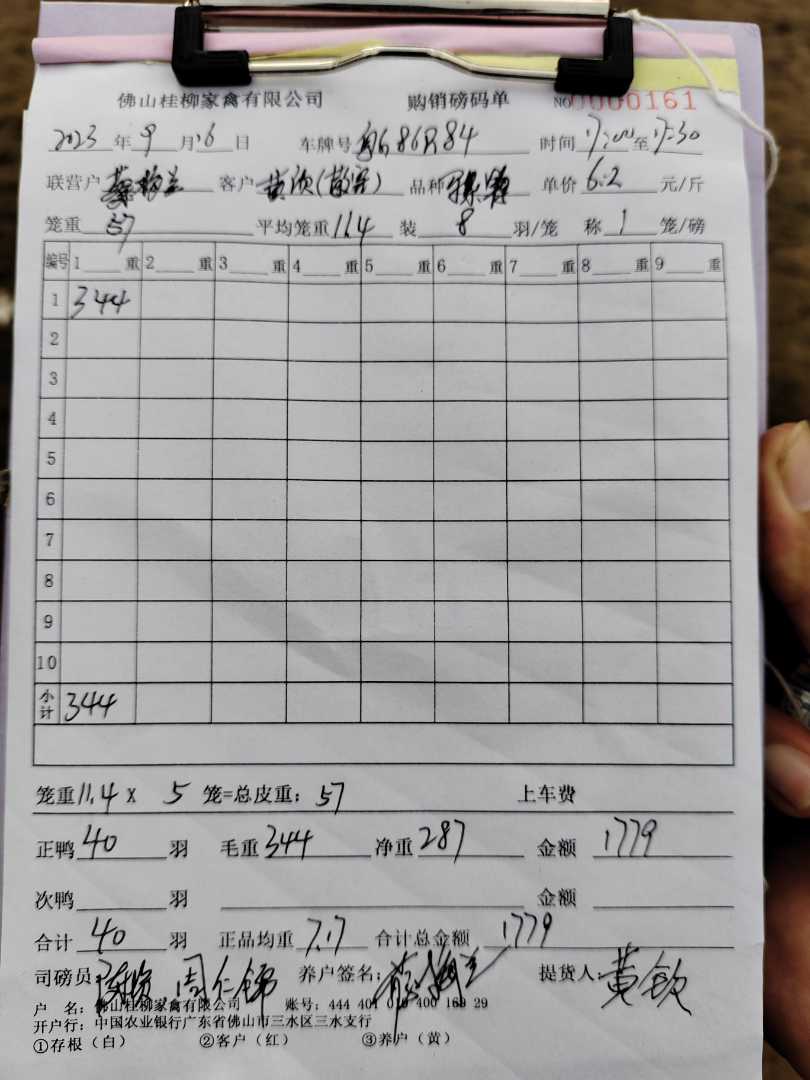 佛山桂柳家禽有限公司 购销磅码单 NO 0000161
2023年9月16日 车牌号 86R84 时间17:00至17:30
联营户 客户 黄钦(散客) 品种 单价6.2元/斤
笼重57 平均笼重11.4 装8羽/笼 称1笼/磅
编号 1重 2重 3重 4重 5重 6重 7重 8重 9重
1 344
2
3
4
5
6
7
8
9
10
小计 344
笼重11.4 X 5笼=总皮重:57 上车费
正鸭40羽 毛重344 净重287 金额1779
次鸭 羽 金额
合计40羽 正品均重7.17 合计总金额1779
司磅员: 周仁锦 养户签名: 提货人:黄钦
户 名:佛山桂柳家禽有限公司 账号:444 401 010 400 169 29
开户行:中国农业银行广东省佛山市三水区三水支行
①存根(白) ②客户(红) ③养户(黄)